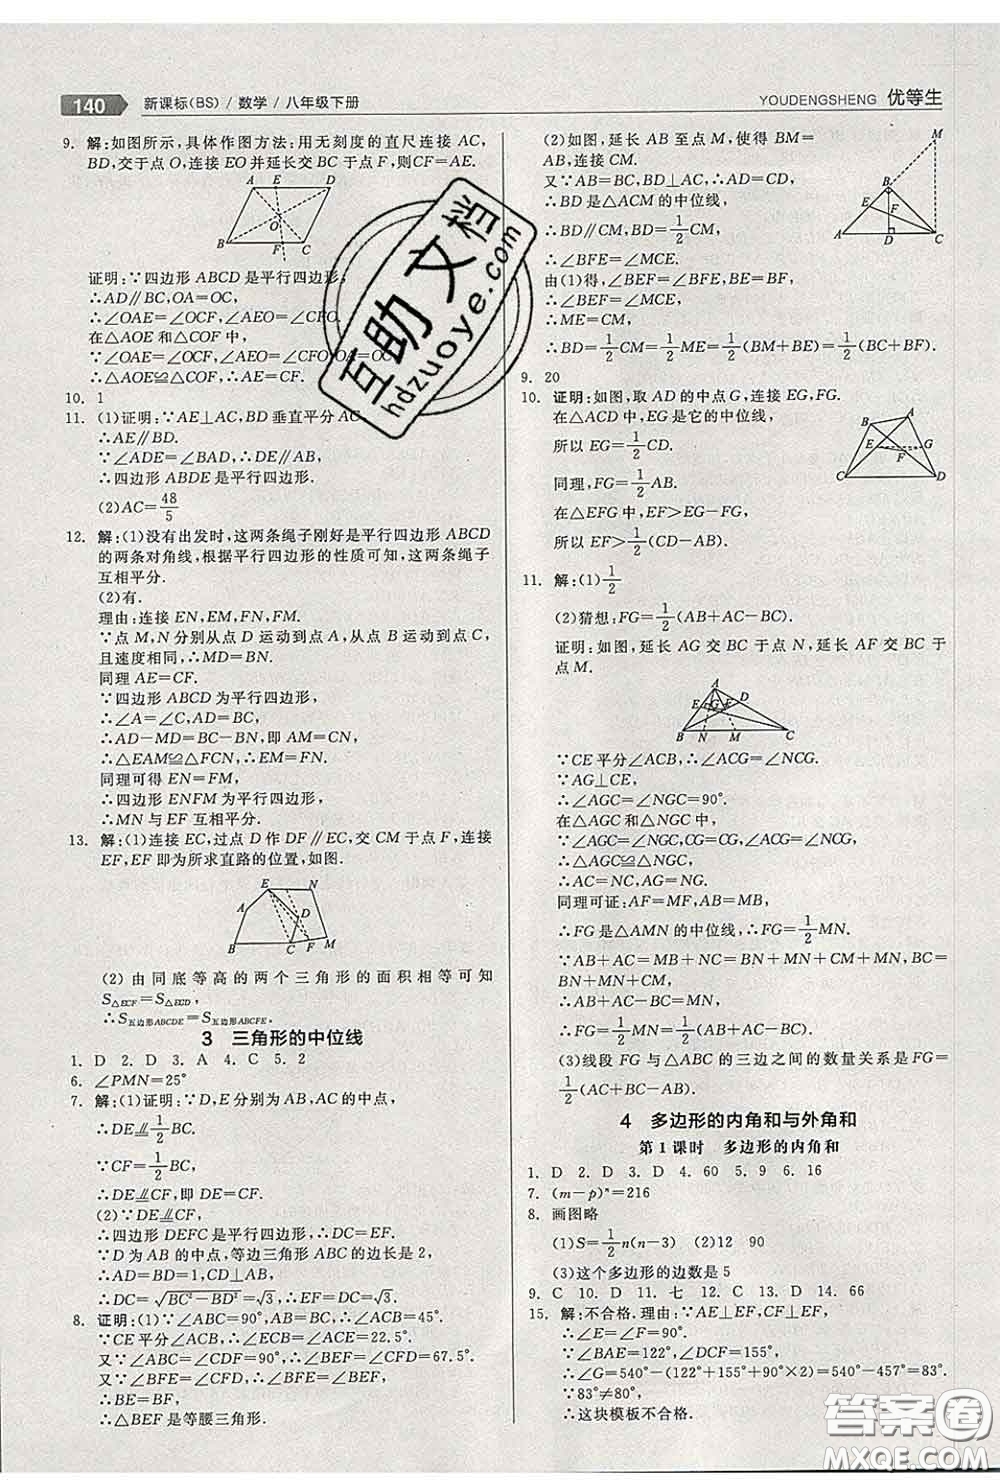 140 新课标(BS) / 数学 / 八年级下册
YOUDENGSHENG 优等生
9. 解:如图所示,具体作图方法:用无刻度的直尺连接 AC,
BD,交于点 O,连接 EO 并延长交 BC 于点 F,则CF=AE.
A E D
O
B F C
证明:∵四边形 ABCD 是平行四边形,
∴AD∥BC,OA=OC,
∴∠OAE=∠OCF,∠AEO=∠CFO.
在△AOE 和△COF 中,
∵∠OAE=∠OCF,∠AEO=∠CFO,OA=OC,
∴△AOE≌△COF,∴AE=CF.
10. 1
11. (1)证明:∵AE⊥AC,BD 垂直平分 AC,
∴AE∥BD.
∵∠ADE=∠BAD,∴DE∥AB,
∴四边形 ABDE 是平行四边形.
(2)AC=48/5
12. 解:(1)没有出发时,这两条绳子刚好是平行四边形 ABCD
的两条对角线,根据平行四边形的性质可知,这两条绳子
互相平分.
(2)有.
理由:连接 EN,EM,FN,FM.
∵点 M,N 分别从点 D 运动到点 A,从点 B 运动到点 C,
且速度相同,∴MD=BN.
同理 AE=CF.
∵四边形 ABCD 为平行四边形,
∴∠A=∠C,AD=BC,
∴AD-MD=BC-BN,即 AM=CN,
∴△EAM≌△FCN,∴EM=FN.
同理可得 EN=FM,
∴四边形 ENFM 为平行四边形,
∴MN 与 EF 互相平分.
13. 解:(1)连接 EC,过点 D 作 DF∥EC,交 CM 于点 F,连接
EF,EF 即为所求直路的位置,如图.
E N
A D
B C F M
(2)由同底等高的两个三角形的面积相等可知
S△ECF=S△ECD,
∴S五边形ABCDE=S五边形ABCFE.
3 三角形的中位线
1. D 2. D 3. A 4. C 5. 2
6. ∠PMN=25°
7. 解:(1)证明:∵D,E 分别为 AB,AC 的中点,
∴DE∥=1/2BC.
∵CF=1/2BC,
∴DE∥=CF.
(2)∵DE∥=CF,
∴四边形 DEFC 是平行四边形,∴DC=EF.
∵D 为 AB 的中点,等边三角形 ABC 的边长是 2,
∴AD=BD=1,CD⊥AB,BC=2,
∴DC=√(BC²-BD²)=√3,∴EF=DC=√3.
8. 证明:(1)∵∠ABC=90°,BA=BC,∴∠ACB=45°.
∵CE 平分∠ACB,∴∠ECB=∠ACE=22.5°.
又∵∠ABC=∠CDF=90°,∴∠BEF=∠CFD=67.5°.
又∵∠BFE=∠CFD,∴∠BEF=∠BFE,
∴△BEF 是等腰三角形.
(2)如图,延长 AB 至点 M,使得 BM=
AB,连接 CM.
又∵AB=BC,∴AD=CD,
∴BD 是△ACM 的中位线,
∴BD∥CM,BD=1/2CM,
∴∠BFE=∠MCE.
由(1)得,∠BEF=∠BFE,BE=BF,
∴∠BEF=∠MCE,
∴ME=CM,
∴BD=1/2CM=1/2ME=1/2(BM+BE)=1/2(BC+BF).
M
B
E F
A D C
9. 20
10. 证明:如图,取 AD 的中点 G,连接 EG,FG.
在△ACD 中,EG 是它的中位线,
所以 EG=1/2CD.
同理,FG=1/2AB.
在△EFG 中,EF>EG-FG,
所以 EF>1/2(CD-AB).
A
B
E G
F
C D
11. 解:(1)1/2
(2)猜想:FG=1/2(AB+AC-BC).
证明:如图,延长 AG 交 BC 于点 N,延长 AF 交 BC 于
点 M.
A
E G F D
B N M C
∵CE 平分∠ACB,∴∠ACG=∠NCG.
∵AG⊥CE,
∴∠AGC=∠NGC=90°.
在△AGC 和△NGC 中,
∵∠AGC=∠NGC,CG=CG,∠ACG=∠NCG,
∴△AGC≌△NGC,
∴AG=NG,AC=NC.
同理可证:AF=MF,AB=MB,
∴FG 是△AMN 的中位线,∴FG=1/2MN.
∵AB+AC=MB+NC=BN+MN+CM+MN,
BC=BN+MN+CM,
∴AB+AC-BC=MN,
∴FG=1/2MN=1/2(AB+AC-BC).
(3)线段 FG 与△ABC 的三边之间的数量关系是 FG=
1/2(AC+BC-AB).
4 多边形的内角和与外角和
第 1 课时 多边形的内角和
1. D 2. D 3. D 4. 60 5. 9 6. 16
7. (m-p)ⁿ=216
8. 画图略
(1)S=1/2n(n-3) (2)12 90
(3)这个多边形的边数是 5
9. C 10. D 11. 七 12. C 13. D 14. 66
15. 解:不合格.理由:∵AE⊥EF,CF⊥EF,
∴∠E=∠F=90°.
∵∠BAE=122°,∠DCF=155°,
∴∠G=540°-(122°+155°+90°×2)=540°-457°=83°.
∵83°≠80°,
∴这块模板不合格.
互助文档
hdzuoye.com
答案圈
MXQE.COM